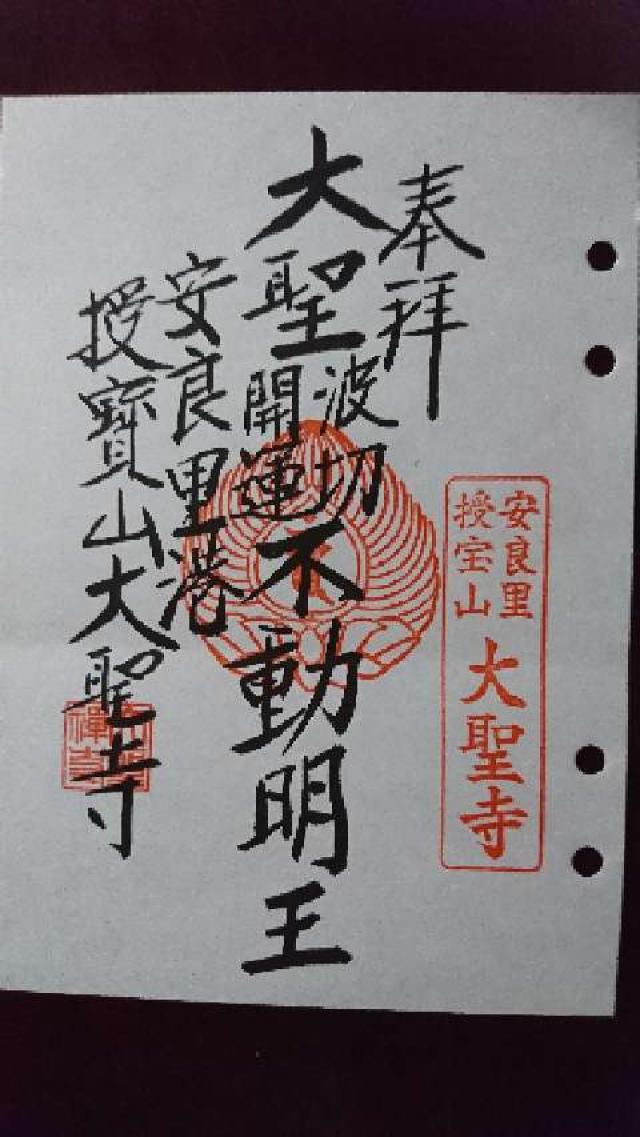 奉拝
大聖
波切
開運
不動明王
安良里港
授寳山大聖寺
安良里
授宝山
大聖寺